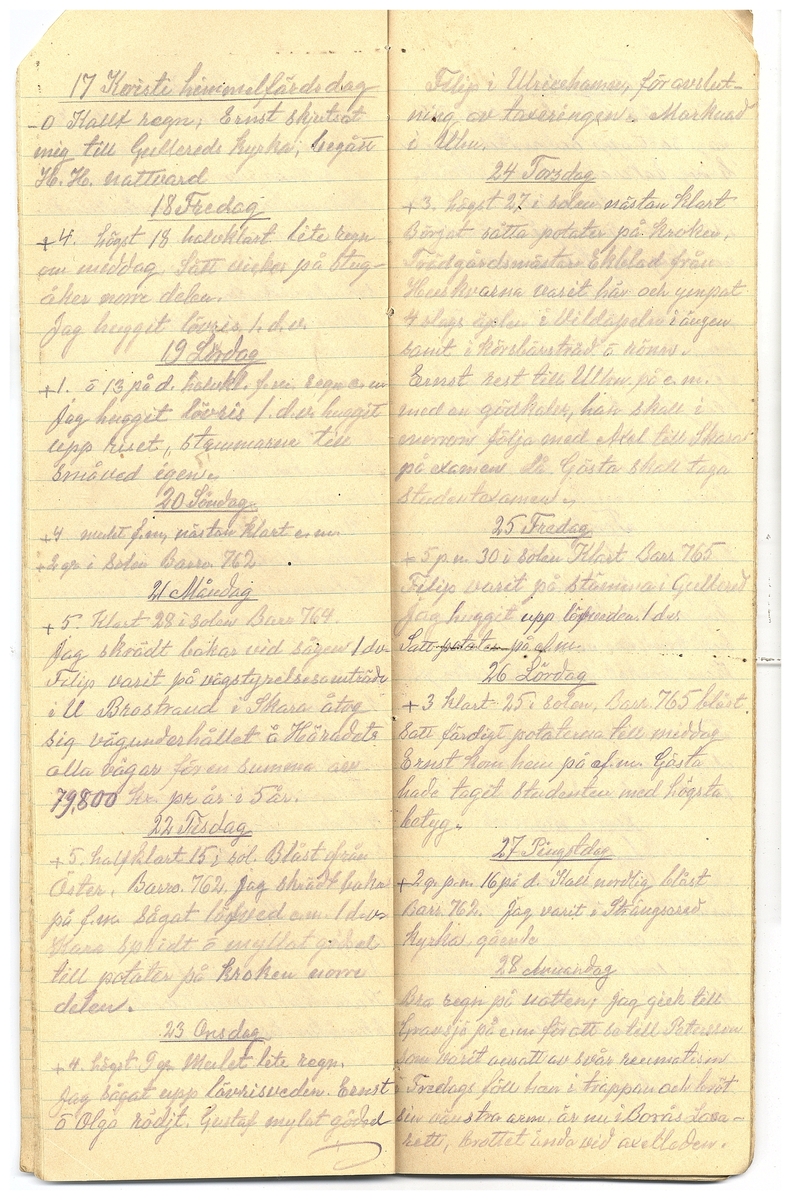 17 Kristi himmelfärdsdag
-0 Kallt regn; Ernst skjutsat
mig till Gullereds kyrka, begått
H. H. nattvard
18 Fredag
+4. högst 18 halvklart lite regn
om middag. Sått vicker på Stug-
åker norre delen.
Jag huggit lövris 1. d.v.
19 Lördag
+1. ö 13 på d. halvkl. f.m. regn e.m
Jag huggit lövris 1. d.v. huggit
upp riset, stammarne till
småved igen.
20 Söndag
+4 mulet f.m, nästan klart e.m.
+2 gr i Solen Barro. 762
21 Måndag
+5. Klart 28 i solen Barr 764.
Jag skrädt bakar vid sågen 1 dv
Filip varit på vägstyrelsesamträde
i U Brostrand i Skara åtog
sig vägunderhållet å Häradets
alla vägar för en summa av
79,800 kr. pr år i 5 år.
22 Tisdag
+5. halfklart 15 i sol. Blåst från
Öster. Barro. 762. Jag skrädt bakar
på f.m. Sågat löfved e.m. 1 d.v.
Karo spridt ö myllat gödsel
till potater på kroken norre
delen.
23 Onsdag
+4. högst 9 gr Mulet lite regn.
Jag sågat upp lövrisveden. Ernst
ö Olga rödjt. Gustaf mylat gödsel
Filip i Ulricehamn, för avslut-
ning av taxeringen. Marknad
i Ulhn.
24 Torsdag
+3. högst 27 i solen nästan klart
Börjat sätta potater på kroken.
Trädgårdsmästare Ekblad från
Huskvarna varit här och ympat
4 slags äplen i Vildapeln i ängen
samt i körsbärsträd ö rönn.
Ernst rest till Ulhn. på e.m.
med en gödkalv, han skall i
morron följa med Axel till Skara
på examen då Gösta skall taga
studentexamen.
25 Fredag
+5 p.n. 30 i solen Klart Barr 765
Filip varit på stämma i Gullered
Jag huggit upp löfveden. 1 dv
Satt potater på e.m.
26 Lördag
+3 klart 25 i solen, Barr. 765 blåst
Satt färdigt potaterna till middag
Ernst kom hem på ef.m. Gösta
hade taget studenten med högsta
betyg.
27 Pingstdag
+2 g. p.n. 16 på d. Kall nordlig blåst
Barr. 762. Jag varit i Strängsered
kyrka gående
28 Annandag
Bra regn på natten; jag gick till
Gransjö på e.m för att se till Petersson
som varit ansatt av svår reumatism
i Fredags föll han i trappan och bröt
sin vänstra arm. är nu i Borås Lasa-
rett, brottet ända vid axelladen.